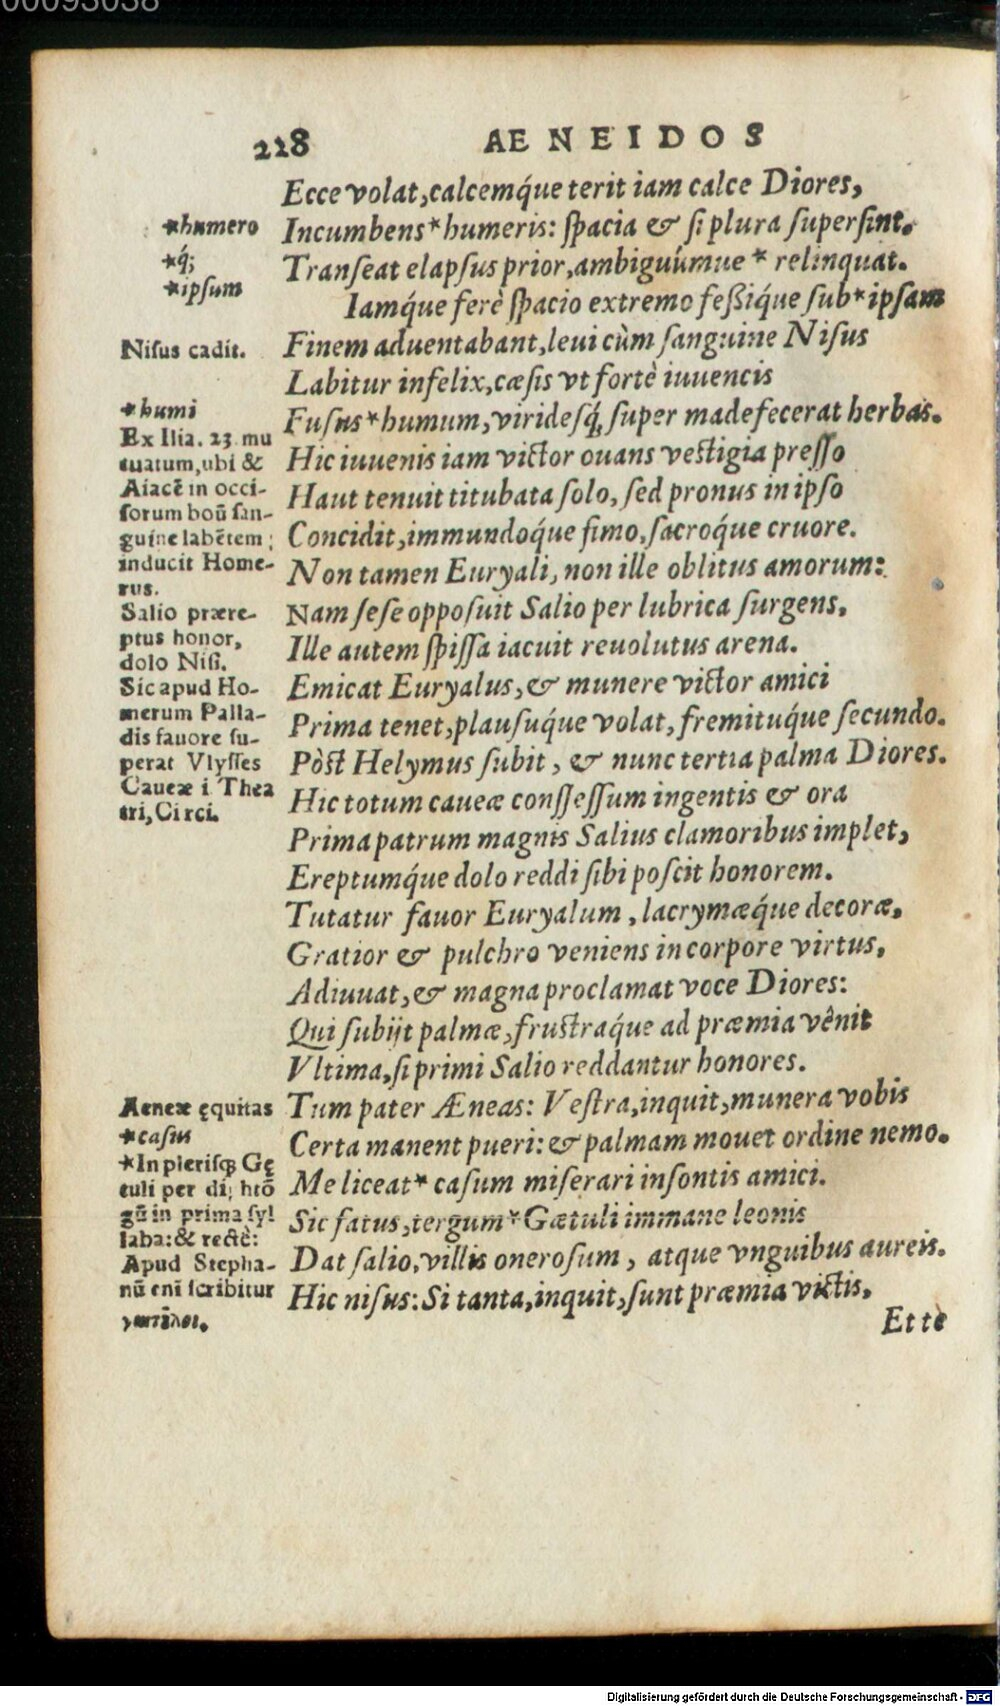 00093038
228 AENEIDOS
Ecce volat, calcemq́ue terit iam calce Diores,
*humero
Incumbens* humeris: ſpacia & ſi plura ſuperſint.
*q́;
Tranſeat elapſus prior, ambiguúmue * relinquat.
*ipſum
Iamq́ue ferè ſpacio extremo feßiq́ue ſub* ipſam
Niſus cadit.
Finem aduentabant, leui cùm ſanguine Niſus
Labitur infelix, cæſis vt fortè iuuencis
*humi
Fuſus* humum, virideſq́; ſuper madefecerat herbas.
Ex Ilia. 23 mu
tuatum, ubi &
Aiacē in occi-
ſorum boū ſan-
guine labētem
inducit Home-
rus.
Hic iuuenis iam victor ouans veſtigia preſſo
Haut tenuit titubata ſolo, ſed pronus in ipſo
Concidit, immundoq́ue fimo, ſacroq́ue cruore.
Non tamen Euryali, non ille oblitus amorum:
Salio prære-
ptus honor,
dolo Niſi.
Nam ſeſe oppoſuit Salio per lubrica ſurgens,
Ille autem ſpiſſa iacuit reuolutus arena.
Sic apud Ho-
merum Palla-
dis fauore ſu-
perat Vlyſſes
Emicat Euryalus, & munere victor amici
Prima tenet, plauſuq́ue volat, fremituq́ue ſecundo.
Pòſt Helymus ſubit, & nunc tertia palma Diores.
Caueæ i Thea
tri, Circi.
Hic totum caueæ conſſeſſum ingentis & ora
Prima patrum magnis Salius clamoribus implet,
Ereptumq́ue dolo reddi ſibi poſcit honorem.
Tutatur fauor Euryalum, lacrymæq́ue decoræ,
Gratior & pulchro veniens in corpore virtus,
Adiuuat, & magna proclamat voce Diores:
Qui ſubijt palmæ, fruſtraq́ue ad præmia vênit
Vltima, ſi primi Salio reddantur honores.
Aeneæ ęquitas
Tum pater Æneas: Veſtra, inquit, munera vobis
*caſus
Certa manent pueri: & palmam mouet ordine nemo.
*In pleriſq; Gę
tuli per di; htō
gū in prima ſyl
laba: & rectè:
Apud Stepha-
nū eni ſcribitur
γαιτῦλοι.
Me liceat* caſum miſerari inſontis amici.
Sic fatus, tergum* Gætuli immane leonis
Dat ſalio, villis oneroſum, atque vnguibus aureis.
Hic niſus: Si tanta, inquit, ſunt præmia victis,
Et te
Digitalisierung gefördert durch die Deutsche Forschungsgemeinschaft - DFG